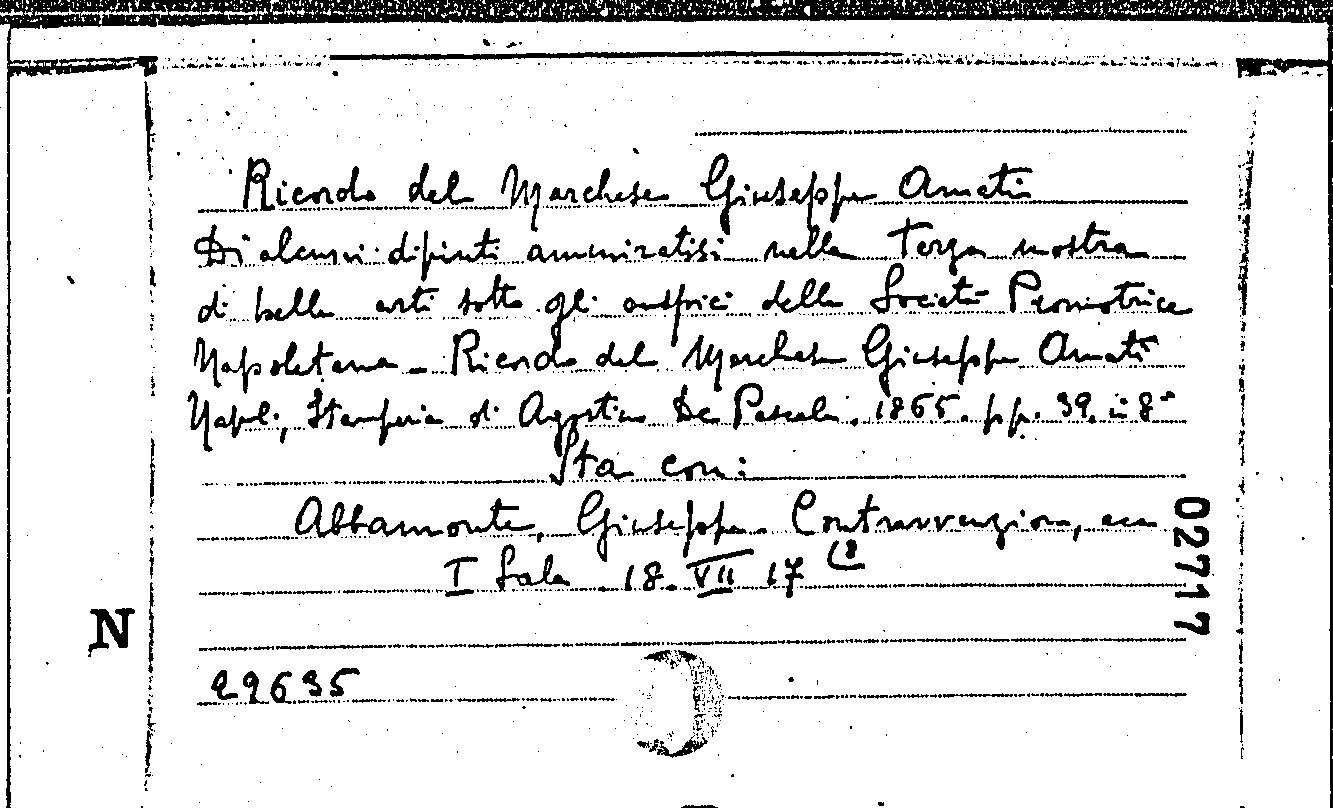 Ricordo del Marchese Giuseppe Amati
Di alcuni dipinti ammiratisi nella Terza mostra
di belle arti sotto gli auspici della Società Promotrice
Napoletana - Ricordo del Marchese Giuseppe Amati
Napoli, Stamperia di Agostino De Pascale, 1865. pp. 39. in 8°
Sta con:
Abbamonte, Giuseppe. Contravvenzioni, ecc
I Sala 18. VII 17 (8
02717
N
29635